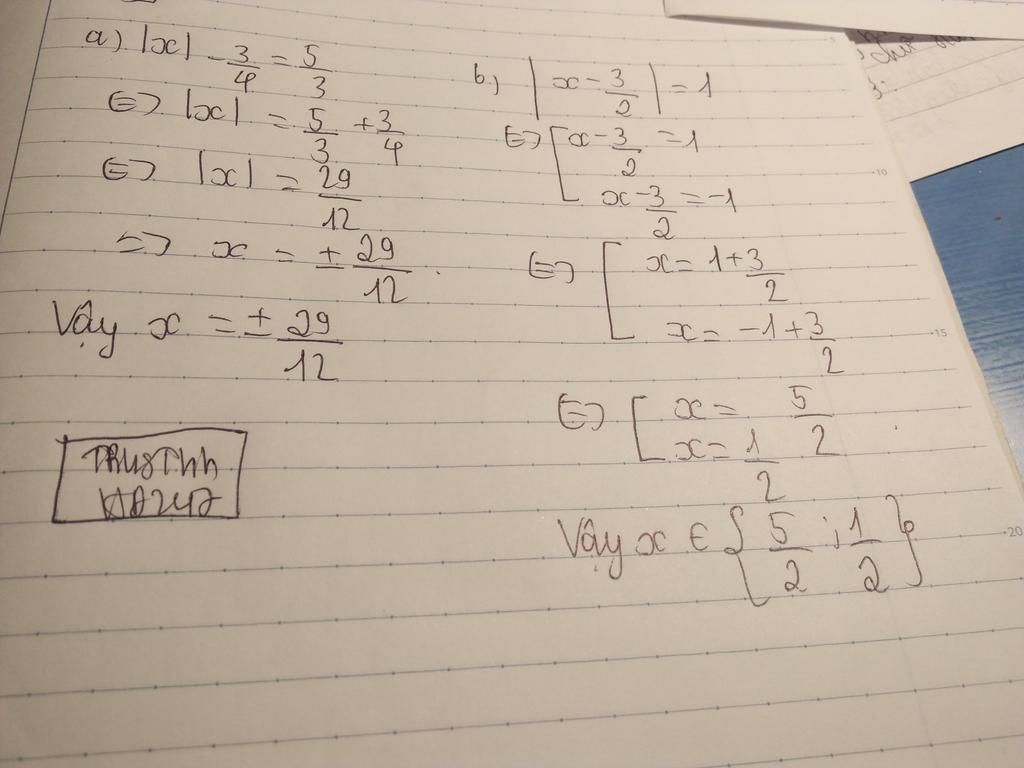 a) |x| - 3/4 = 5/3
⇔ |x| = 5/3 + 3/4
⇔ |x| = 29/12
⇒ x = ± 29/12.
Vậy x = ± 29/12
b) |x - 3/2| = 1
⇔ [ x - 3/2 = 1
x - 3/2 = -1
⇔ [ x = 1 + 3/2
x = -1 + 3/2
⇔ [ x = 5/2
x = 1/2
Vậy x ∈ {5/2 ; 1/2}
10
15
20